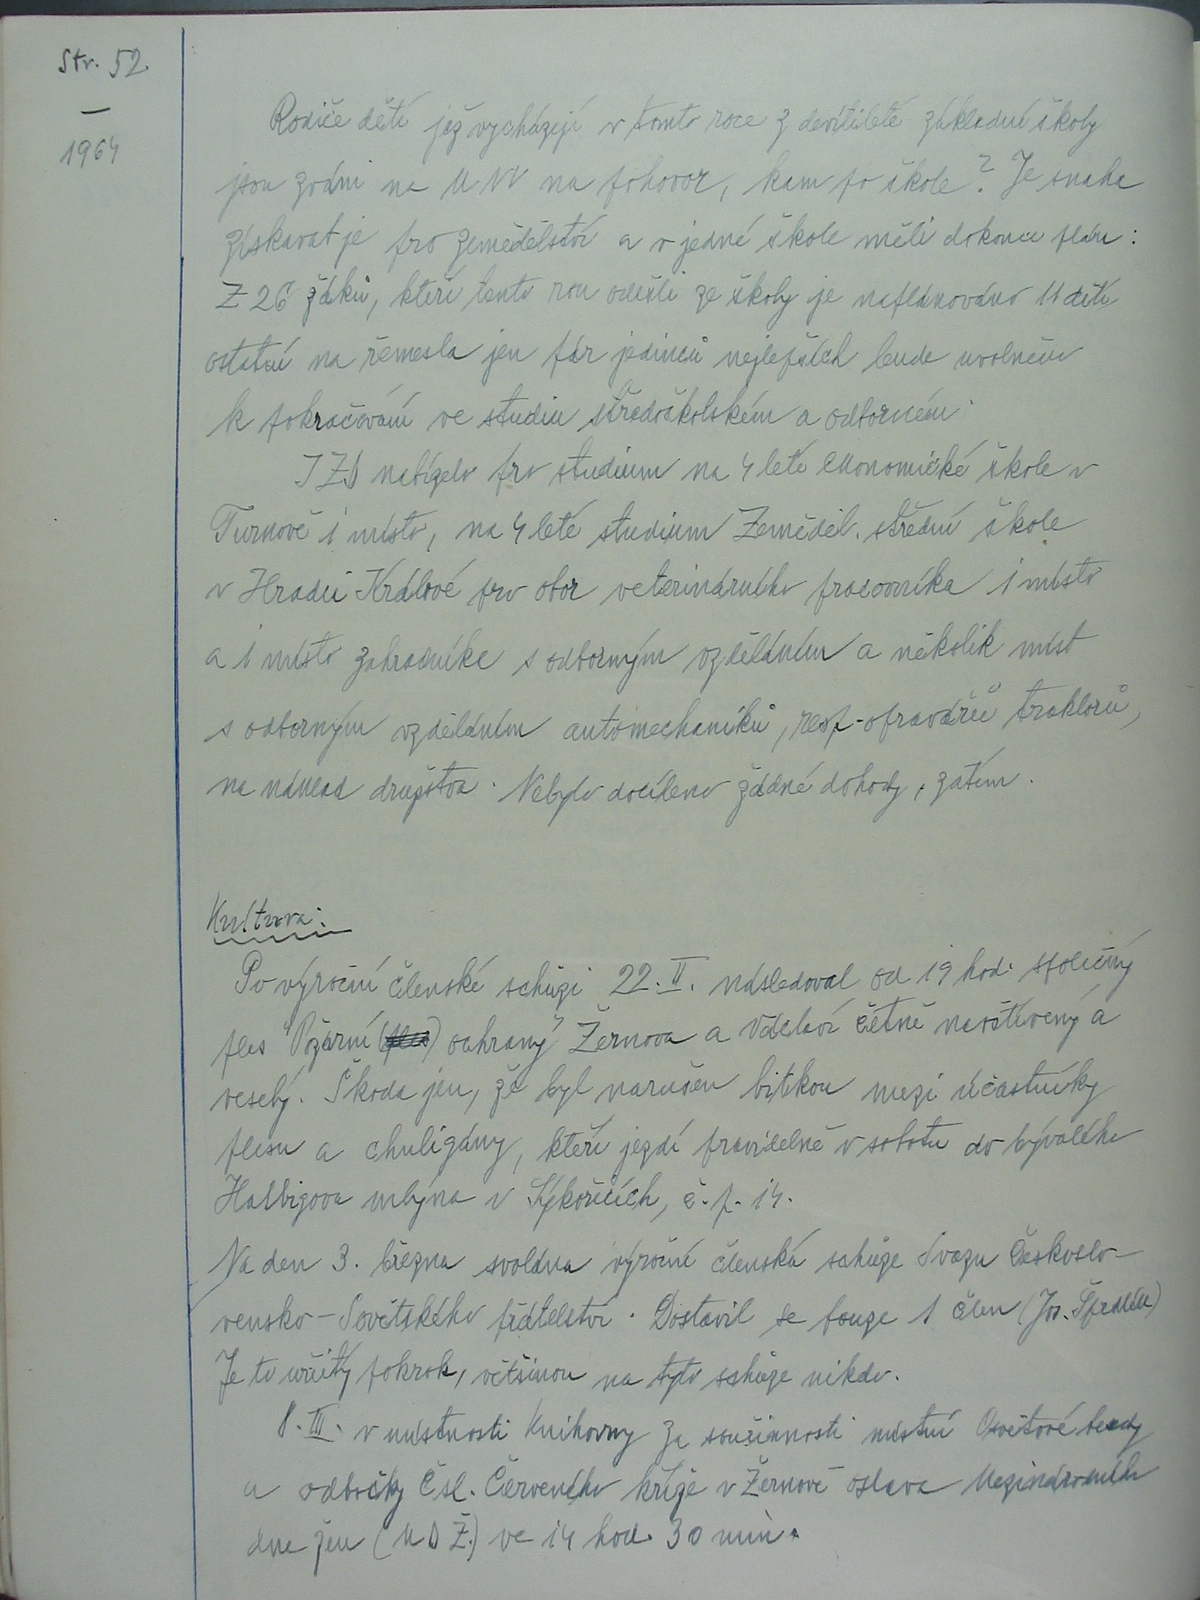 Str. 52
—
1964
Rodiče dětí jež vycházejí v tomto roce z devítileté základní školy
jsou zváni na MNV na pohovor, kam po škole? Je snaha
získavat je pro zemědělství a v jedné škole měli dokonce plán:
Z 26 žáků, kteří tento rok odešli ze školy je naplánováno 11 dětí,
ostatní na řemesla jen pár jedinců nejlepších bude uvolněno
k pokračování ve studiu středoškolském a odborném.
JZD nabízelo pro studium na 4 leté ekonomické škole v
Turnově 1 místo, na 4 leté studium Zeměděl. střední škole
v Hradci Králové pro obor veterinárního pracovníka 1 místo
a 1 místo zahradníka s odborným vzděláním a několik míst
s odborným vzděláním automechaniků, resp. opravářů traktorů,
na náklad družstva. Nebylo docíleno žádné dohody, zatím.
Kultura:
Po výroční členské schůzi 22. II. následoval od 19 hod. společný
ples "Požární ochrany" Žernova a Václaví četně navštívený a
veselý. Škoda jen, že byl narušen bitkou mezi účastníky
plesu a chuligány, kteří jezdí pravidelně v sobotu do bývalého
Halbigova mlýna v Sýkořicích, č. p. 14.
Na den 3. března svolána výroční členská schůze Svazu Českoslo-
vensko-Sovětského přátelství. Dostavil se pouze 1 člen (Jos.
Je to určitý pokrok, většinou na tyto schůze nikdo.
8. III. v místnosti Knihovny za součinnosti místní Osvětové besedy
a odbočky Čsl. Červeného kříže v Žernově oslava Mezinárodního
dne žen (MDŽ.) ve 14 hod. 30 min.